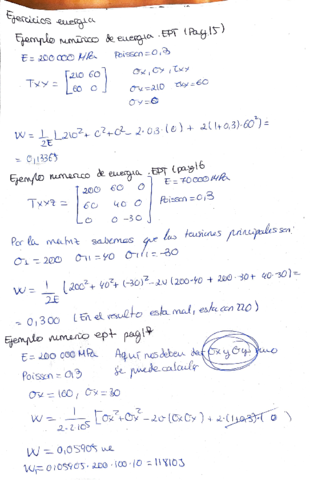 Ejercicios energia
Ejemplo numérico de energia EPT (Pag 15)
E = 200 000 MPa Poisson = 0,3
Txy = [210 60
60 0] σx, σy, τxy
σx = 210 τxy = 60
σy = 0
W = 1/2E [210² + 0² + 0² - 2·0.3·(0) + 2(1+0,3)·60²] =
= 0,13369
Ejemplo numerico de energia EPT (pag 16
Txyz = [200 60 0
60 40 0
0 0 -30] E = 70000 MPa
Poisson = 0,3
Por la matriz sabemos que las tensiones principales son:
σI = 200 σII = 40 σIII = -30
W = 1/2E (200² + 40² + (-30)² - 2ν (200·40 + 200·-30 + 40·-30) =
= 0,300 (En el resulto esta mal, esta con 210)
Ejemplo numerico ept pag 17
E = 200 000 MPa Aqui nos deben dar σx y σy sino
Poisson = 0,3 se puede calcular
σx = 160, σx = 30
W = 1/2·2·10⁵ [σx² + σx² - 2ν (σxσx) + 2·(1+0,3)·( 0 )
W = 0,05905
W = 0,05905·200·100·10 = 118103